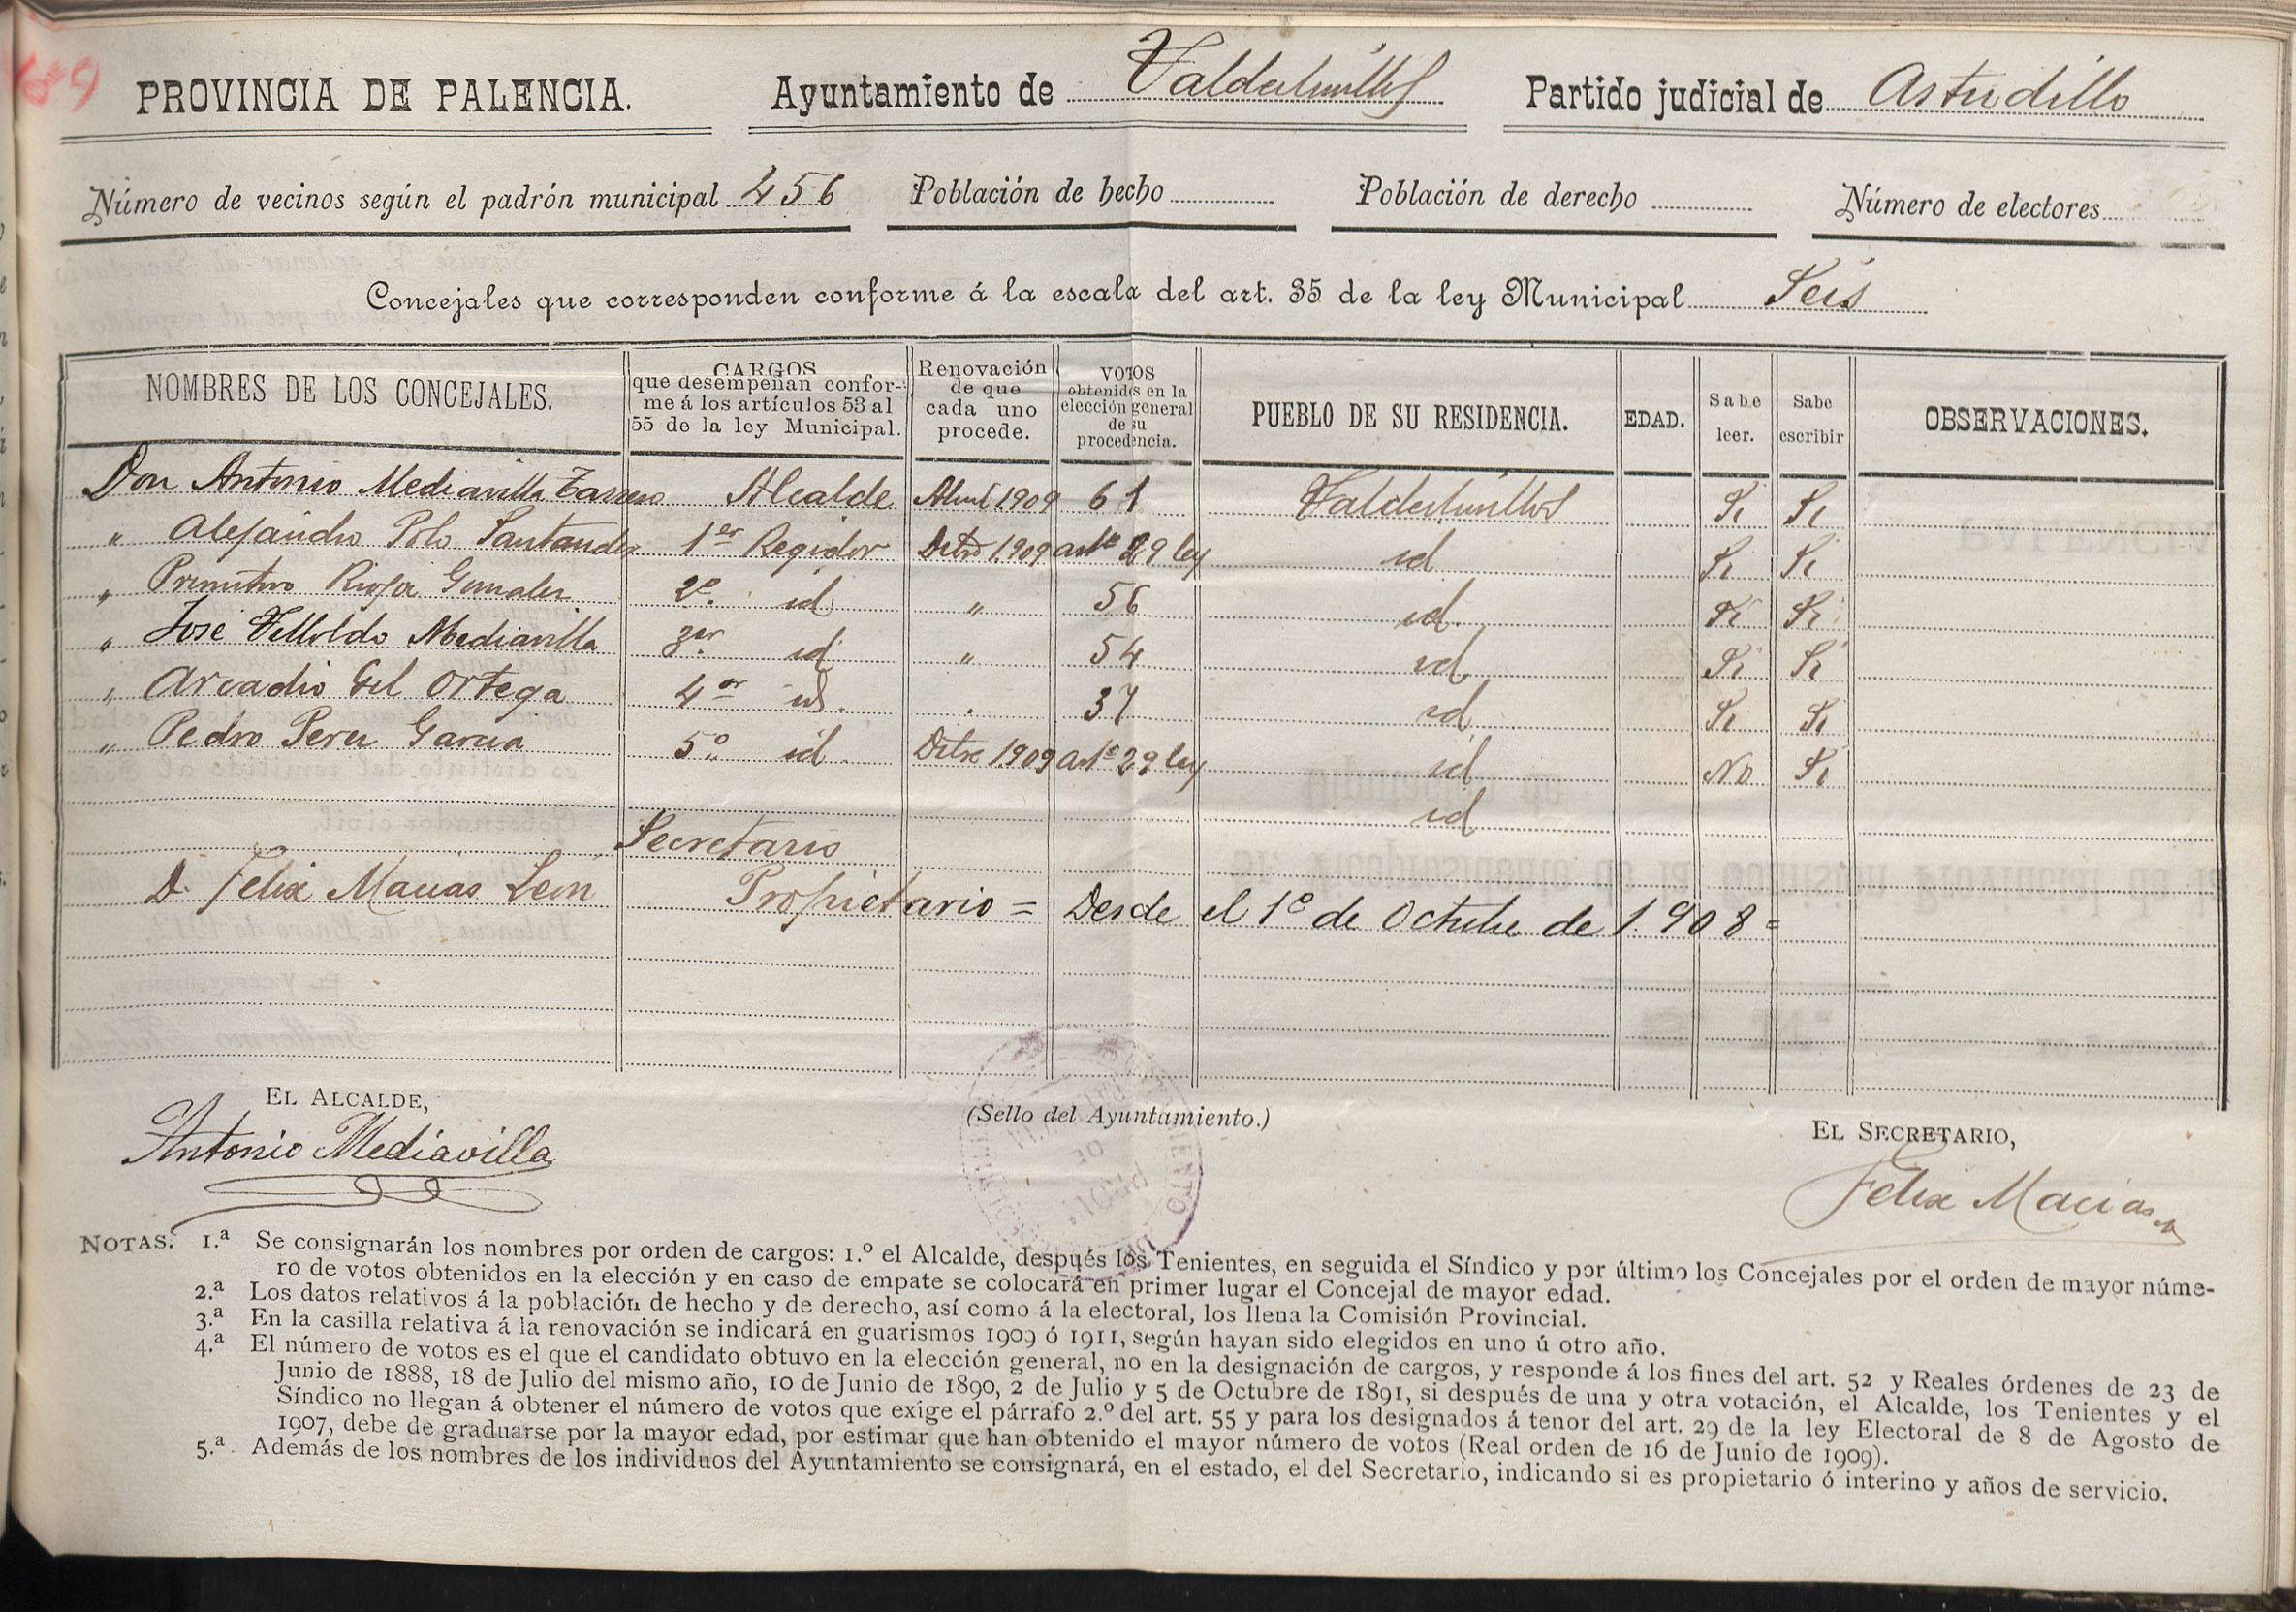 689
PROVINCIA DE PALENCIA. Ayuntamiento de Valdeolmillos Partido judicial de Astudillo
Número de vecinos según el padrón municipal 456 Población de hecho Población de derecho Número de electores
Concejales que corresponden conforme á la escala del art. 35 de la ley Municipal Seis
NOMBRES DE LOS CONCEJALES. CARGOS que desempeñan conforme á los artículos 53 al 55 de la ley Municipal. Renovación de que cada uno procede. VOTOS obtenidos en la elección general de su procedencia. PUEBLO DE SU RESIDENCIA. EDAD. Sabe leer. Sabe escribir OBSERVACIONES.
Don Antonio Mediavilla Tarrero Alcalde Abril 1909 61 Valdeolmillos Si Si
" Alejandro Polo Santander 1er Regidor Dibre 1909 arte 29 ley id Si Si
" Primitivo Rioja Gonzalez 2º. id " 56 id. Si Si
" José Velloldo Mediavilla 3er. id " 54 id. Si Si
" Arcadio Gil Ortega 4or id. . 37 id Si Si
" Pedro Perez Garcia 5º. id. Dibre 1909 arte 29 ley id No Si
id
Secretario
D. Felix Macias Leon Propietario = Desde el 1º de Octubre de 1.908=
EL ALCALDE,
Antonio Mediavilla
(Sello del Ayuntamiento.)
EL SECRETARIO,
Felix Macias
NOTAS. 1.ª Se consignarán los nombres por orden de cargos: 1.º el Alcalde, después los Tenientes, en seguida el Síndico y por último los Concejales por el orden de mayor núme-
ro de votos obtenidos en la elección y en caso de empate se colocará en primer lugar el Concejal de mayor edad.
2.ª Los datos relativos á la población de hecho y de derecho, así como á la electoral, los llena la Comisión Provincial.
3.ª En la casilla relativa á la renovación se indicará en guarismos 1909 ó 1911, según hayan sido elegidos en uno ú otro año.
4.ª El número de votos es el que el candidato obtuvo en la elección general, no en la designación de cargos, y responde á los fines del art. 52 y Reales órdenes de 23 de
Junio de 1888, 18 de Julio del mismo año, 10 de Junio de 1890, 2 de Julio y 5 de Octubre de 1891, si después de una y otra votación, el Alcalde, los Tenientes y el
Síndico no llegan á obtener el número de votos que exige el párrafo 2.º del art. 55 y para los designados á tenor del art. 29 de la ley Electoral de 8 de Agosto de
1907, debe de graduarse por la mayor edad, por estimar que han obtenido el mayor número de votos (Real orden de 16 de Junio de 1909).
5.ª Además de los nombres de los individuos del Ayuntamiento se consignará, en el estado, el del Secretario, indicando si es propietario ó interino y años de servicio.